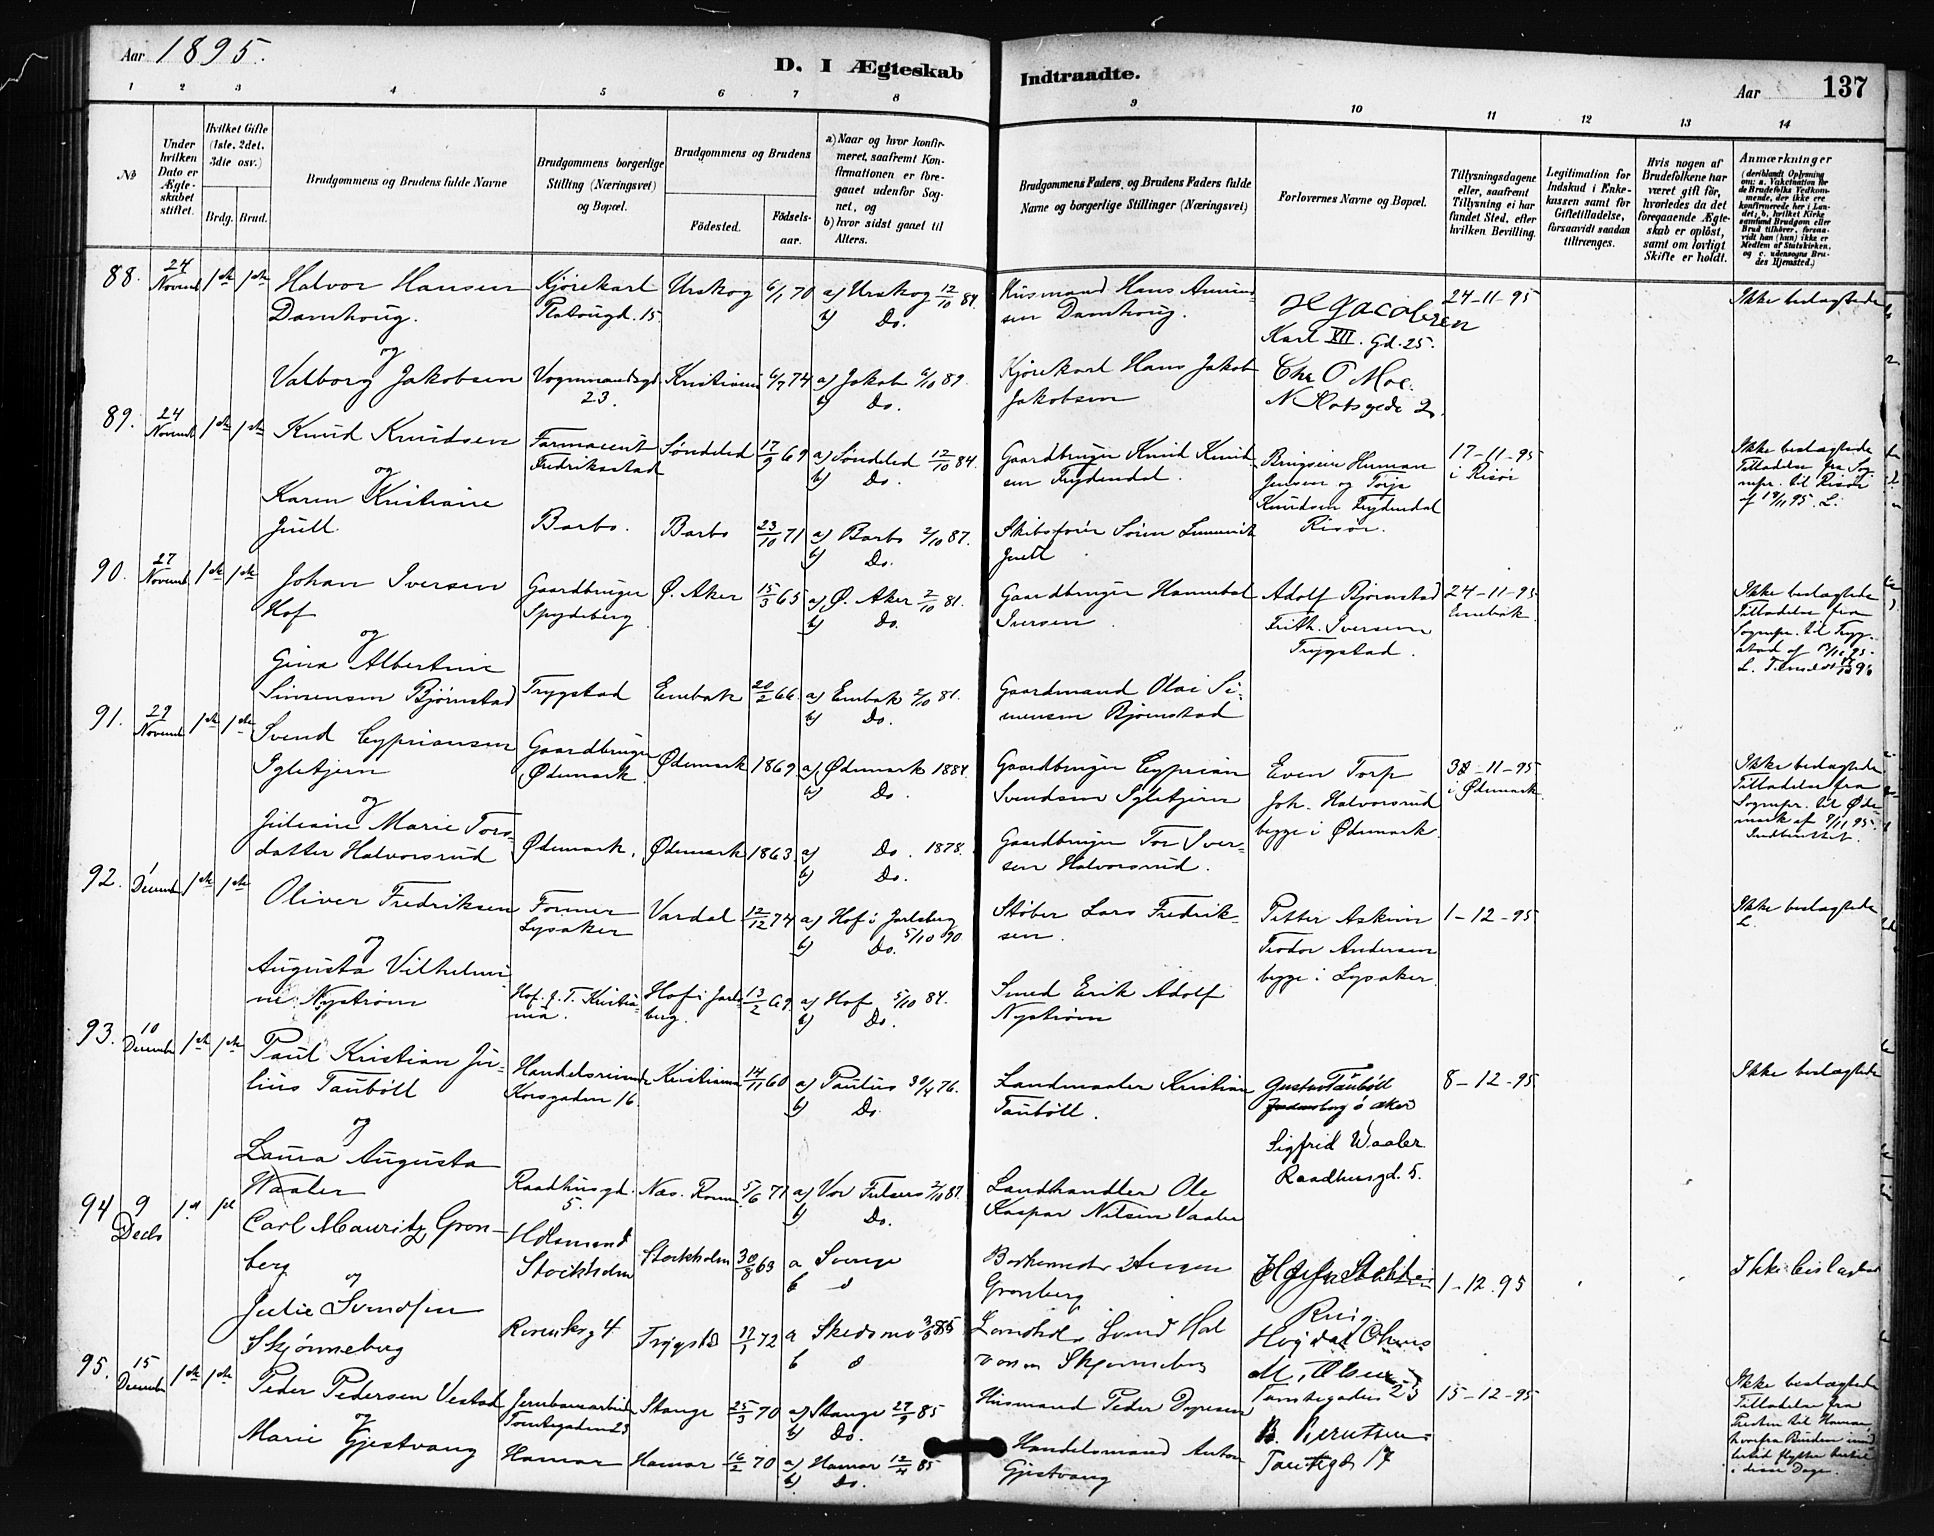 Aar 1895.
D. I Ægteskab Indtraadte.
Aar 137
1 2 3 4 5 6 7 8 9 10 11 12 13 14
No
Under hvilken Dato er Ægteskabet stiftet.
Hvilket Gifte (1ste, 2det, 3die osv.)
Brdg. Brud.
Brudgommens og Brudens fulde Navne
Brudgommens borgerlige Stilling (Næringsvei) og Bopæl.
Brudgommens og Brudens
Fødested. Fødselsaar.
a) Naar og hvor konfirmeret, saafremt Konfirmationen er foregaaet udenfor Sognet, og
b) hvor sidst gaaet til Alters.
Brudgommens Faders og Brudens Faders fulde Navne og borgerlige Stillinger (Næringsvei)
Forlovernes Navne og Bopæl.
Tillysningsdagene eller, saafremt Tillysning ei har fundet Sted, efter hvilken Bevilling.
Legitimation for Indskud i Enkekassen samt for Giftetilladelse, forsaavidt saadan tiltrænges.
Hvis nogen af Brudefolkene har været gift før, hvorledes da det foregaaende Ægteskab er opløst, samt om lovligt Skifte er holdt.
Anmærkninger
(deriblandt Oplysning om: a. Vakcination for de Brudefolks Vedkommende, der ikke ere konfirmerede her i Landet; b. hvilket Kirkesamfund Brudgom eller Brud tilhører, forsaavidt han (hun) ikke er Medlem af Statskirken, og c. udensogns Brudes Hjemsted.)
88. 24 Novemb 1ste 1ste Halvor Hansen Damhoug. Kjørekarl Platougd. 15 Urskog 6/1 70 a) Urskog 12/10 84. b) Do. Husmand Hans Amundsen Damhoug. H Jacobsen Karl XII. Gd. 25. 24-11-95 Ikke beslægtede
og
Valborg Jakobsen Vognmandsgd 23. Kristiania 6/7 74 a) Jakob 6/10 89. b) Do. Kjørekarl Hans Jakob Jakobsen Chr O Moe. N Slotsgade 2.
89. 24 Novemb 1ste 1ste Knud Knudsen Farmaceut Fredriksstad Søndeled 17/9 69 a) Søndeled 12/10 84. b) Do. Gaardbruger Knud Knudsen Frydendal. Herman Jensen og Terje Knudsen Frydendal Risør. 17-11-95 i Risør Ikke beslægtede Tilladelse fra Sognepr. til Risør
og
Karen Kristiane Juell Barbo. Barbo 23/10 71 a) Barbo 2/10 87. b) Do. Skibsfører Sören Juell
90. 27 Novemb 1ste 1ste Johan Iversen Hof Gaardbruger Spydeberg Ø. Aker 15/3 65 a) Ø. Aker 2/10 81. b) Do. Gaardbruger Hannibal Iversen. Adolf Bjørnstad Frith. Iversen Trygstad. 24-11-95 Enebak. Ikke beslægtede Tilladelse fra Sognepr. til Trygstad
og
Gina Albertine Simensen Bjørnstad Trygstad Enebak 20/2 66. a) Enebak 2/10 81. b) Do. Gaardmand Olai Simensen Bjørnstad
91. 29 Novemb 1ste 1ste Svend Cypriansen Igletjern Gaardbruger Ødemark Ødemark 1869 a) Ødemark 1884. b) Do. Gaardbruger Cyprian Svendsen Igletjern Even Torp Joh. Halvorsrud begge i Ødemark. -11-95 i Ødemark Ikke beslægtede Tilladelse fra Sognepr. til Ødemark af 8/11 95.
og
Juliane Marie Torsdatter Halvorsrud Ødemark. Ødemark 1863 a) Do. 1878. b) Do. Gaardbruger Tor Iversen Halvorsrud.
92. 1 Decemb 1ste 1ste Oliver Fredriksen Former Lysaker Vardal 12/12 74 a) Hof i Jarlsberg 5/10 90 b) Do. Støber Lars Fredriksen. Petter Askim Teodor Andersen begge i Lysaker. 1-12-95 Ikke beslægtede L.
og
Augusta Vilhelmine Nystrøm Hof. J. T. Kristiania. Hof i Jarlsberg. 13/2 69. a) Hof 5/10 84. b) Do. Smed Erik Adolf Nystrøm
93. 10 December 1ste 1ste Paul Kristian Julius Tauböll Handelsreisende Korsgaden 16 Kristiania 14/11 60 a) Paulus 30/4 76. b) Do. Landmaaler Kristian Tauböll. Gustav Tauböll i Aker Sigfrid Waaler Raadhusgd. 5. 8-12-95 Ikke beslægtede
og
Laura Augusta Waaler Raadhusgd. 5. Nes. Rom. 5/6 71 a) Vor Frelsers 2/10 87. b) Do. Landhandler Ole Kaspar Nilsen Vaaler
94 9 Decb 1st 1st Carl Mauritz Gronberg Stockholm Stockholm 30/8 63 a Sverige b d Gronberg 1-12.95 Ikke beslægtet
og
Julie Svendsen Skjønneberg 4 Trygstad 17/1 72 a Skedsmo 85 b d Svend Skjønneberg
95. 15 December 1ste 1ste Peder Pedersen Vestad Jernbanearbeider Tomtegaden 23 Stange 25/3 70 a) Stange 27/9 85 b) Do. Husmand Peder M. Olsen Tomtegaden 23 15-12-95 Ikke beslægtede Tilladelse fra Presten til Hamar, hvorfra Bruden
og
Marie Gjestvang Hamar Hamar 16/2 70 a) Hamar 12/4 85 b) Do. Handelsmand Anton Gjestvang B. Berntsen Tomtegd 17